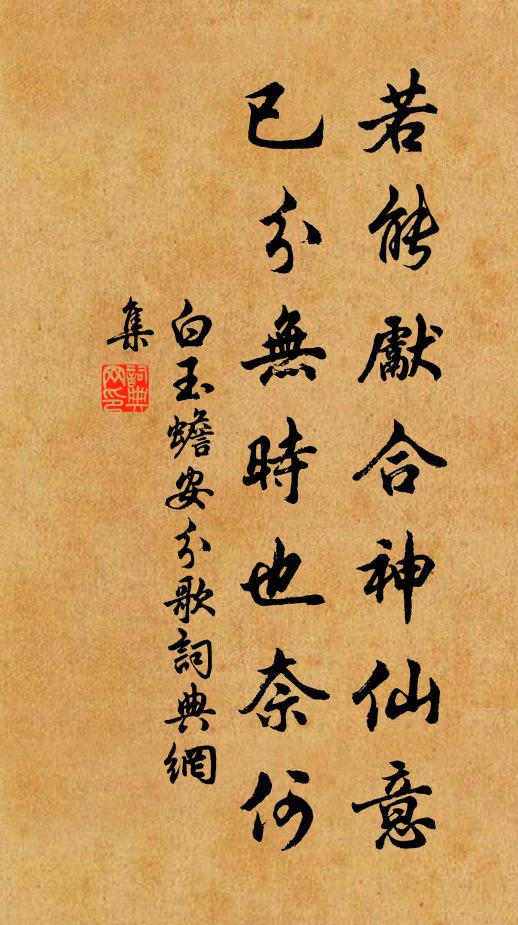 若能獻合神仙意
已分無時也奈何
白玉蟾安分歌詞典網
集
詞典网印